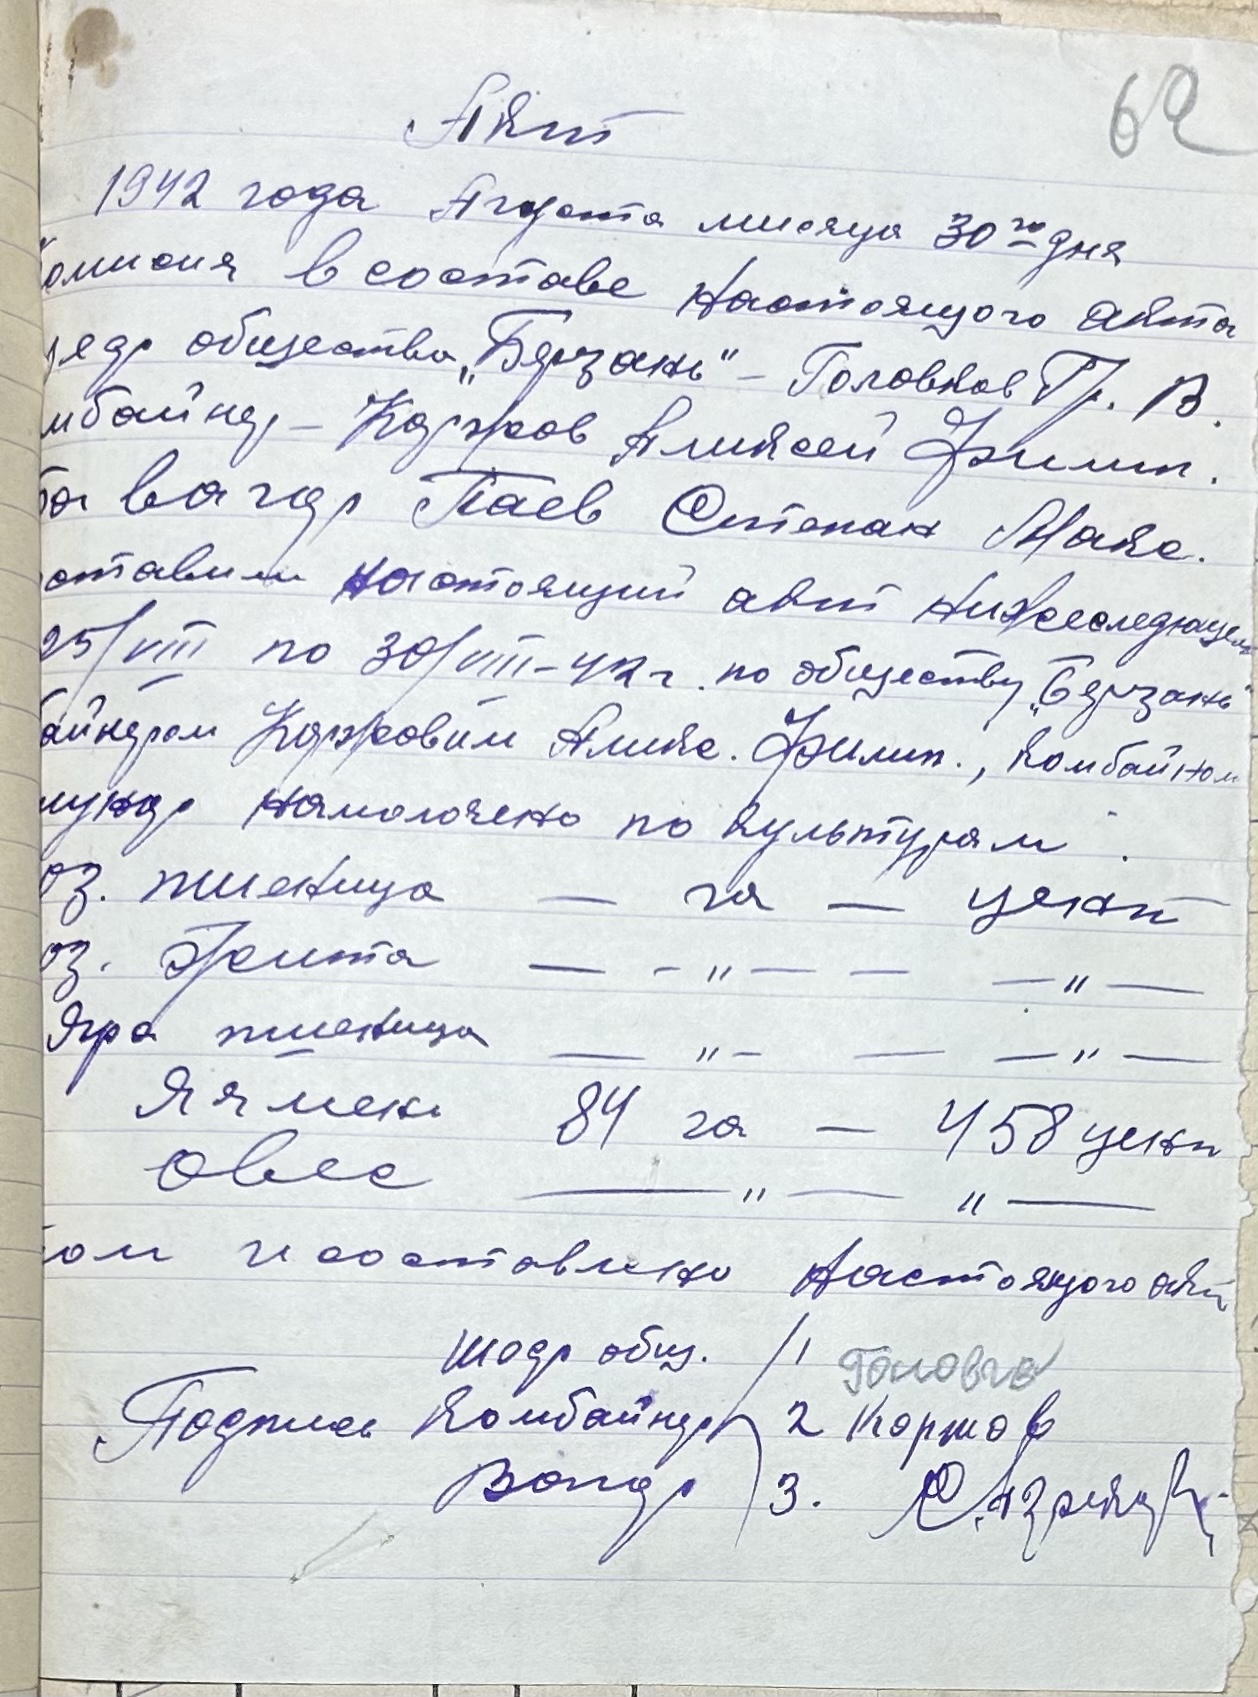 62
Акт
1942 года Агуста мисяца 30го дня
омисия в составе настоящого акта
едр общества „Бузань" – Головков Гр. В.
мбайнер – Коржов Аликсей Филип.
вагар Паев Степан Макс.
оставили настоящий акт нижеследующем
25/VIII по 30/VIII–42 г. по обществу „Бузань"
айнером Коржовим Алике. Филип., комбайном
намолочено по культурам:
оз. пшеница — га — цент
оз. жита — – „ — — — „ —
Яра пшеница — „ – — — „ —
Ячмень 84 га — 458 цент
Овес — „ — „ —
ом и составлено настоящого акт
общ. / 1 Головков
Подпись Комбайнер 2 Коржов
Вагар 3.